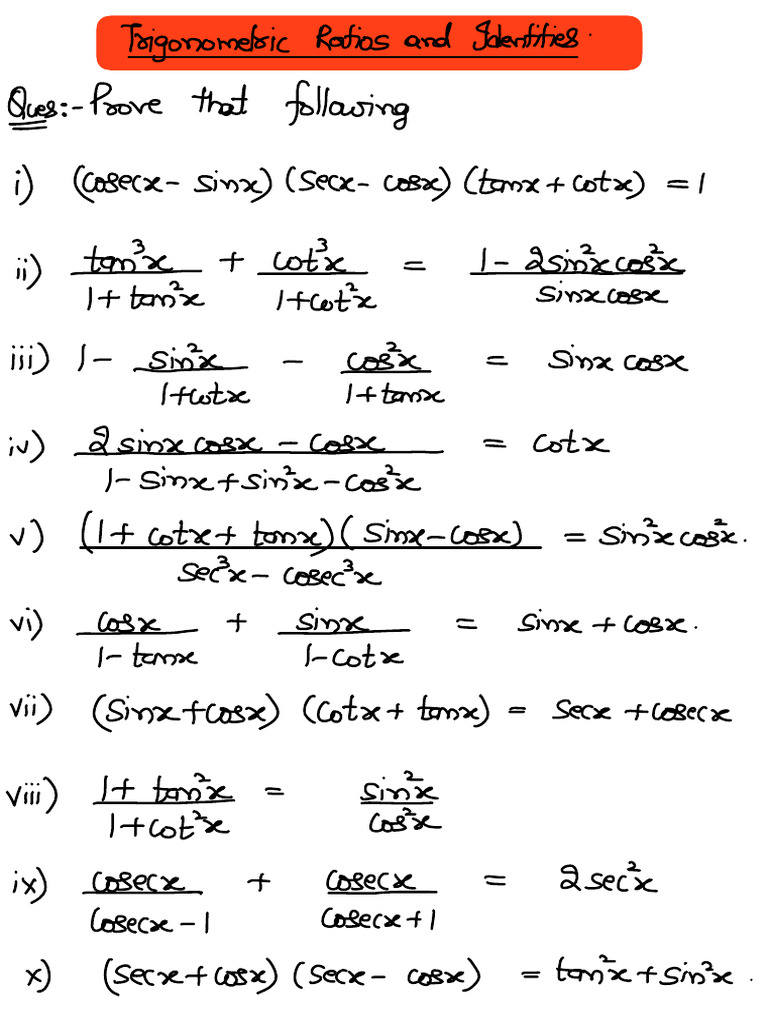 Trigonometric Ratios and Identities.
Ques:- Prove that following
i) (cosecx - sinx) (secx - cosx) (tanx + cotx) = 1
ii) tan³x/(1 + tan²x) + cot³x/(1 + cot²x) = (1 - 2sin²x cos²x)/(sinx cosx)
iii) 1 - sin²x/(1 + cotx) - cos²x/(1 + tanx) = sinx cosx
iv) (2 sinx cosx - cosx)/(1 - sinx + sin²x - cos²x) = cotx
v) (1 + cotx + tanx)(sinx - cosx)/(sec³x - cosec³x) = sin²x cos²x.
vi) cosx/(1 - tanx) + sinx/(1 - cotx) = sinx + cosx.
vii) (sinx + cosx) (cotx + tanx) = secx + cosecx
viii) (1 + tan²x)/(1 + cot²x) = sin²x/cos²x
ix) cosecx/(cosecx - 1) + cosecx/(cosecx + 1) = 2 sec²x
x) (secx + cosx) (secx - cosx) = tan²x + sin²x.